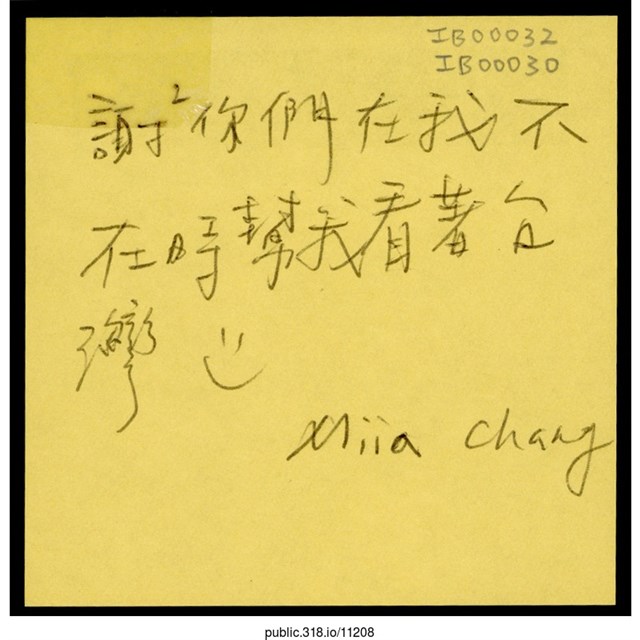 IB00032
IB00030
謝²你們在我不
在時幫我看著台
灣
Miia Chang
public.318.io/11208